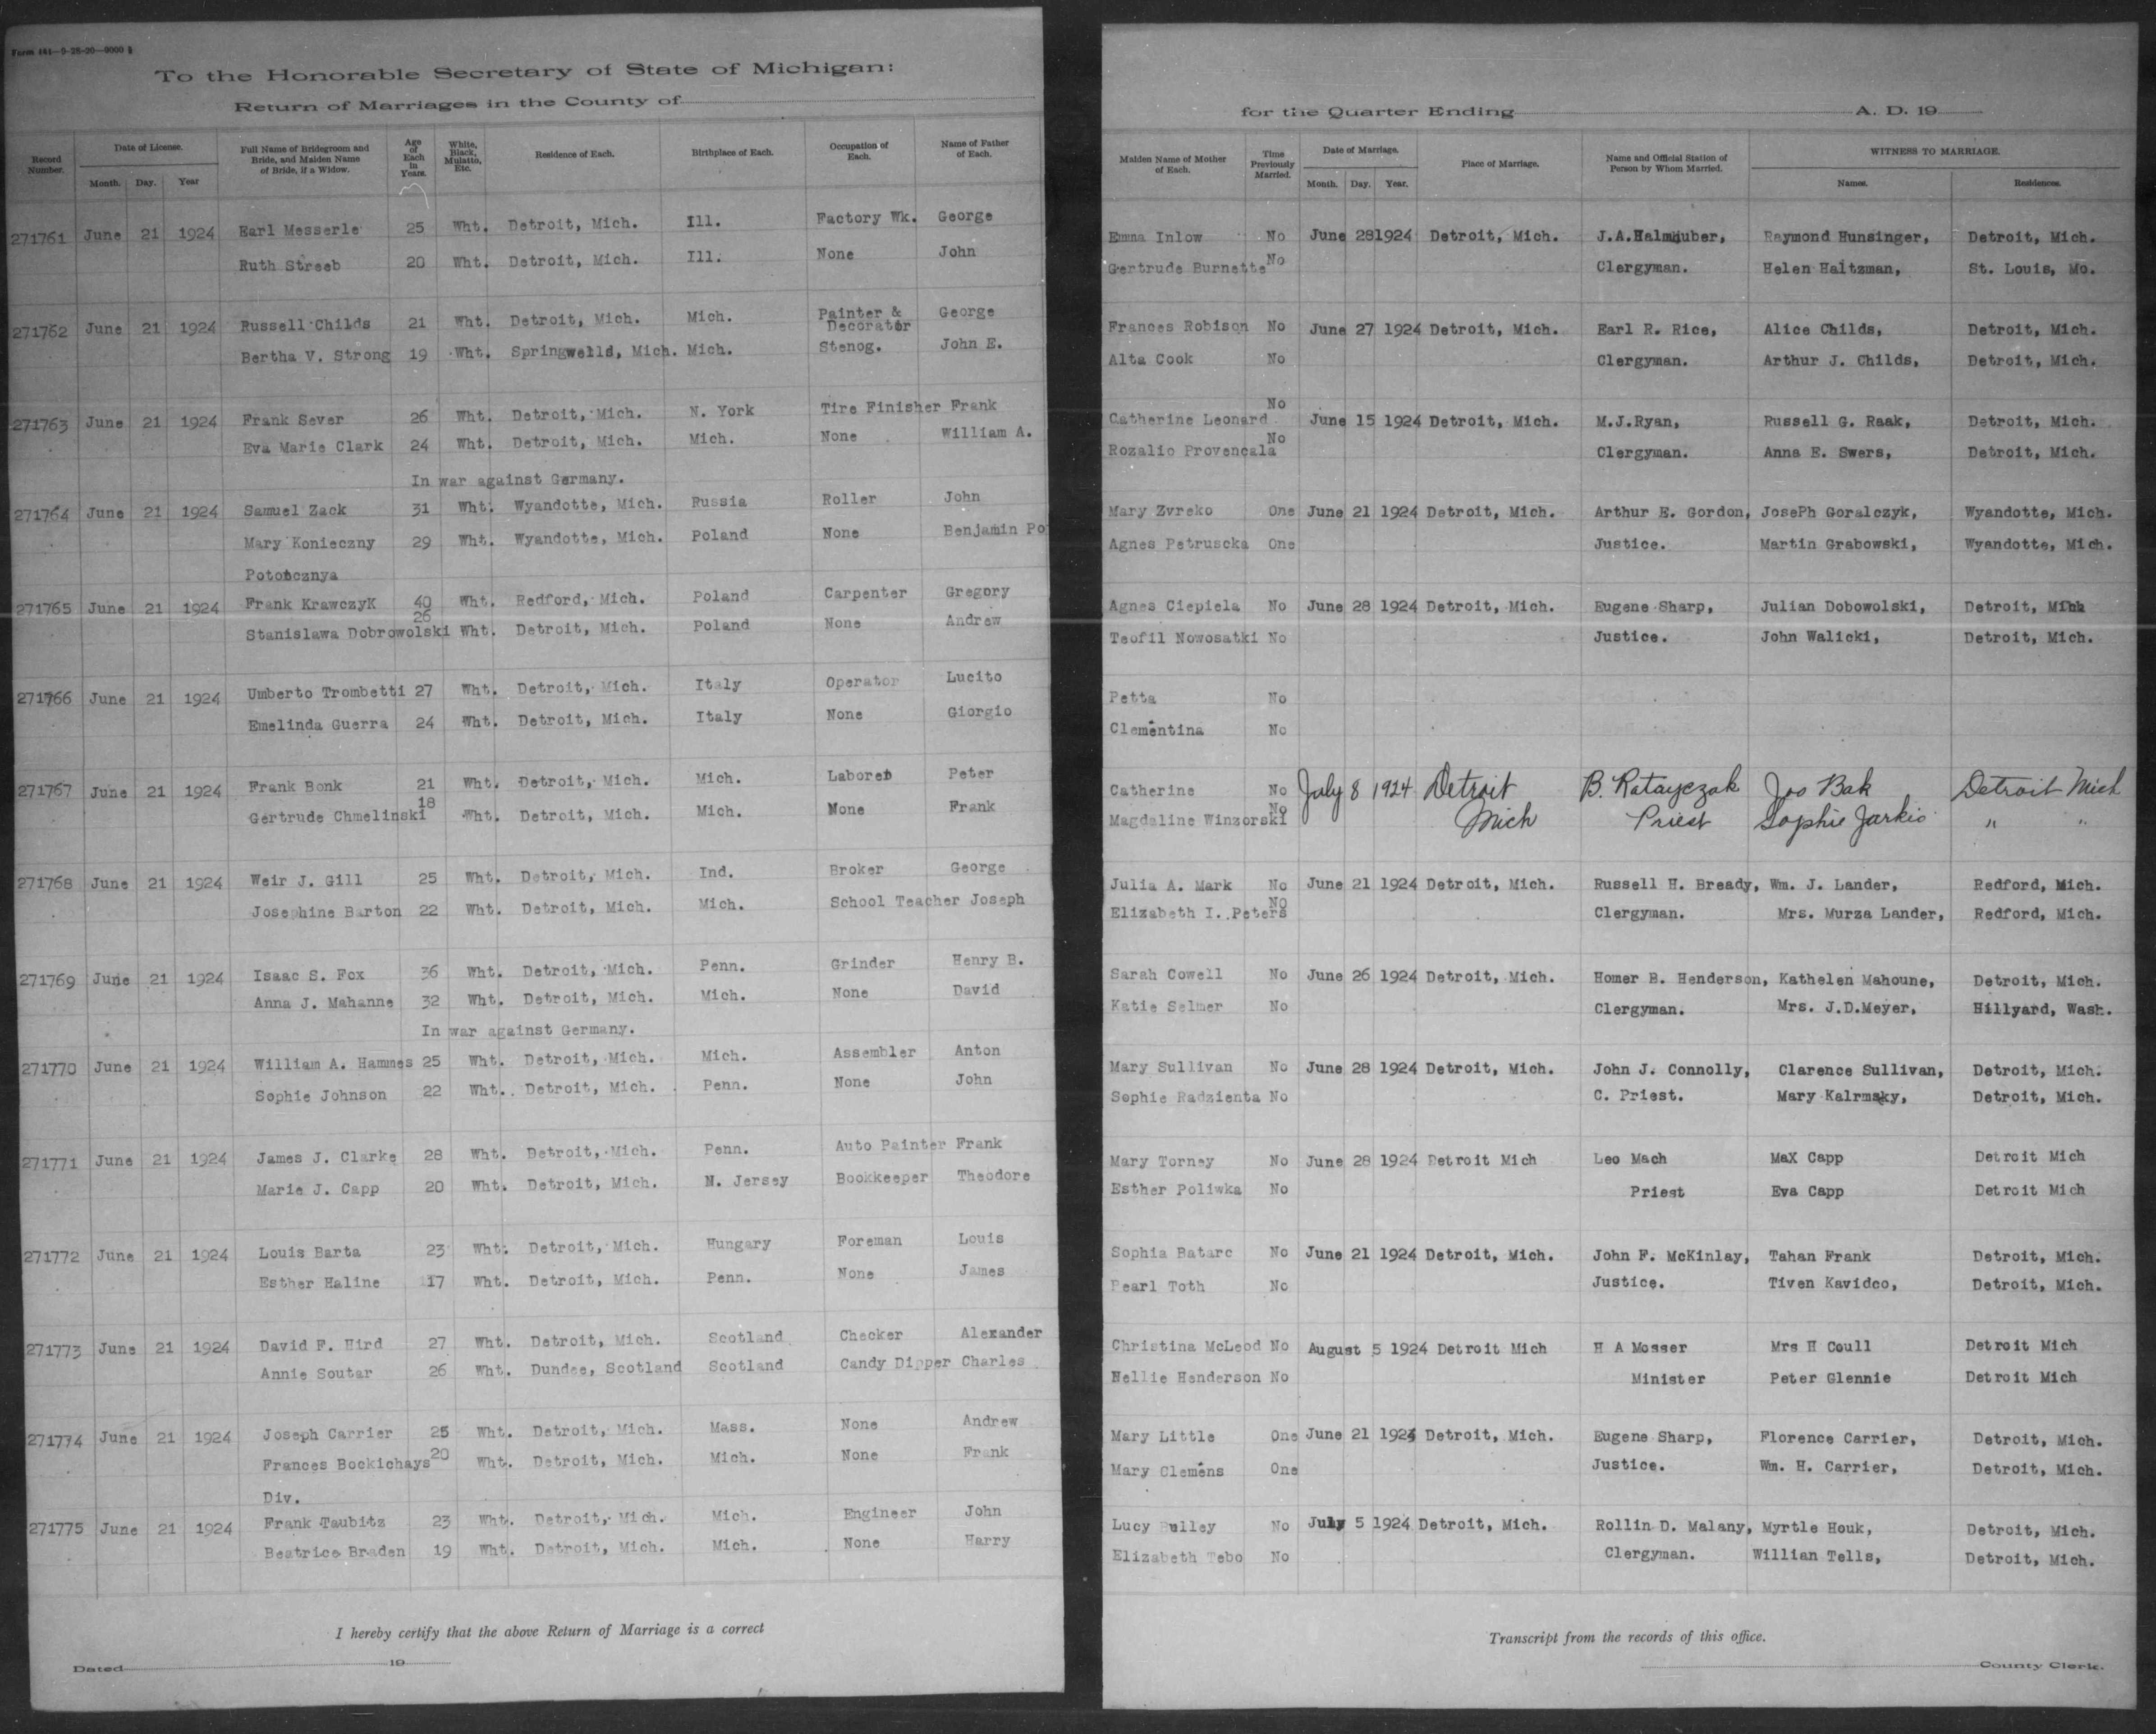 Form 441—9-28-20—9000 §
To the Honorable Secretary of State of Michigan:
Return of Marriages in the County of
for the Quarter Ending A. D. 19
Record Number. Date of License. Month. Day. Year Full Name of Bridegroom and Bride, and Maiden Name of Bride, if a Widow. Age of Each in Years. White, Black, Mulatto, Etc. Residence of Each. Birthplace of Each. Occupation of Each. Name of Father of Each. Maiden Name of Mother of Each. Time Previously Married. Date of Marriage. Month. Day. Year. Place of Marriage. Name and Official Station of Person by Whom Married. WITNESS TO MARRIAGE. Names. Residences.
271761 June 21 1924 Earl Messerle 25 Wht. Detroit, Mich. Ill. Factory Wk. George Emma Inlow No June 28 1924 Detroit, Mich. J.A.Halmhuber, Raymond Hunsinger, Detroit, Mich.
Ruth Streeb 20 Wht. Detroit, Mich. Ill. None John Gertrude Burnette No Clergyman. Helen Haitzman, St. Louis, Mo.
271762 June 21 1924 Russell Childs 21 Wht. Detroit, Mich. Mich. Painter & Decorator George Frances Robison No June 27 1924 Detroit, Mich. Earl R. Rice, Alice Childs, Detroit, Mich.
Bertha V. Strong 19 Wht. Springwells, Mich. Mich. Stenog. John E. Alta Cook No Clergyman. Arthur J. Childs, Detroit, Mich.
271763 June 21 1924 Frank Sever 26 Wht. Detroit, Mich. N. York Tire Finisher Frank Catherine Leonard No June 15 1924 Detroit, Mich. M.J.Ryan, Russell G. Raak, Detroit, Mich.
Eva Marie Clark 24 Wht. Detroit, Mich. Mich. None William A. Rozalio Provencala No Clergyman. Anna E. Swers, Detroit, Mich.
In war against Germany.
271764 June 21 1924 Samuel Zack 31 Wht. Wyandotte, Mich. Russia Roller John Mary Zvreko One June 21 1924 Detroit, Mich. Arthur E. Gordon, JosePh Goralczyk, Wyandotte, Mich.
Mary Konieczny 29 Wht. Wyandotte, Mich. Poland None Benjamin Po Agnes Petruscka One Justice. Martin Grabowski, Wyandotte, Mich.
Potoncznya
271765 June 21 1924 Frank KrawczyK 40 Wht. Redford, Mich. Poland Carpenter Gregory Agnes Ciepiela No June 28 1924 Detroit, Mich. Eugene Sharp, Julian Dobowolski, Detroit, Mich
Stanislawa Dobrowolski 26 Wht. Detroit, Mich. Poland None Andrew Teofil Nowosatki No Justice. John Walicki, Detroit, Mich.
271766 June 21 1924 Umberto Trombetti 27 Wht. Detroit, Mich. Italy Operator Lucito Petta No
Emelinda Guerra 24 Wht. Detroit, Mich. Italy None Giorgio Clementina No
271767 June 21 1924 Frank Bonk 21 Wht. Detroit, Mich. Mich. Laborer Peter Catherine No July 8 1924 Detroit B. Ratayczak Jos Bak Detroit Mich
Gertrude Chmelinski 18 Wht. Detroit, Mich. Mich. None Frank Magdaline Winzorski No Mich Priest Sophie Jarkis " "
271768 June 21 1924 Weir J. Gill 25 Wht. Detroit, Mich. Ind. Broker George Julia A. Mark No June 21 1924 Detroit, Mich. Russell H. Bready, Wm. J. Lander, Redford, Mich.
Josephine Barton 22 Wht. Detroit, Mich. Mich. School Teacher Joseph Elizabeth I. Peters No Clergyman. Mrs. Murza Lander, Redford, Mich.
271769 June 21 1924 Isaac S. Fox 36 Wht. Detroit, Mich. Penn. Grinder Henry B. Sarah Cowell No June 26 1924 Detroit, Mich. Homer B. Henderson, Kathelen Mahoune, Detroit, Mich.
Anna J. Mahanne 32 Wht. Detroit, Mich. Mich. None David Katie Selmer No Clergyman. Mrs. J.D.Meyer, Hillyard, Wash.
In war against Germany.
271770 June 21 1924 William A. Hammes 25 Wht. Detroit, Mich. Mich. Assembler Anton Mary Sullivan No June 28 1924 Detroit, Mich. John J. Connolly, Clarence Sullivan, Detroit, Mich.
Sophie Johnson 22 Wht. Detroit, Mich. Penn. None John Sophie Radzienta No C. Priest. Mary Kalrmsky, Detroit, Mich.
271771 June 21 1924 James J. Clarke 28 Wht. Detroit, Mich. Penn. Auto Painter Frank Mary Torney No June 28 1924 Detroit Mich Leo Mach MaX Capp Detroit Mich
Marie J. Capp 20 Wht. Detroit, Mich. N. Jersey Bookkeeper Theodore Esther Poliwka No Priest Eva Capp Detroit Mich
271772 June 21 1924 Louis Barta 23 Wht. Detroit, Mich. Hungary Foreman Louis Sophia Batarc No June 21 1924 Detroit, Mich. John F. McKinlay, Tahan Frank Detroit, Mich.
Esther Haline 17 Wht. Detroit, Mich. Penn. None James Pearl Toth No Justice. Tiven Kavidco, Detroit, Mich.
271773 June 21 1924 David F. Hird 27 Wht. Detroit, Mich. Scotland Checker Alexander Christina McLeod No August 5 1924 Detroit Mich H A Mosser Mrs H Coull Detroit Mich
Annie Soutar 26 Wht. Dundee, Scotland Scotland Candy Dipper Charles Nellie Henderson No Minister Peter Glennie Detroit Mich
271774 June 21 1924 Joseph Carrier 25 Wht. Detroit, Mich. Mass. None Andrew Mary Little One June 21 1924 Detroit, Mich. Eugene Sharp, Florence Carrier, Detroit, Mich.
Frances Bockichays 20 Wht. Detroit, Mich. Mich. None Frank Mary Clemens One Justice. Wm. H. Carrier, Detroit, Mich.
Div.
271775 June 21 1924 Frank Taubitz 23 Wht. Detroit, Mich. Mich. Engineer John Lucy Bulley No July 5 1924 Detroit, Mich. Rollin D. Malany, Myrtle Houk, Detroit, Mich.
Beatrice Braden 19 Wht. Detroit, Mich. Mich. None Harry Elizabeth Tebo No Clergyman. Willian Tells, Detroit, Mich.
I hereby certify that the above Return of Marriage is a correct Transcript from the records of this office.
Dated 19 County Clerk.